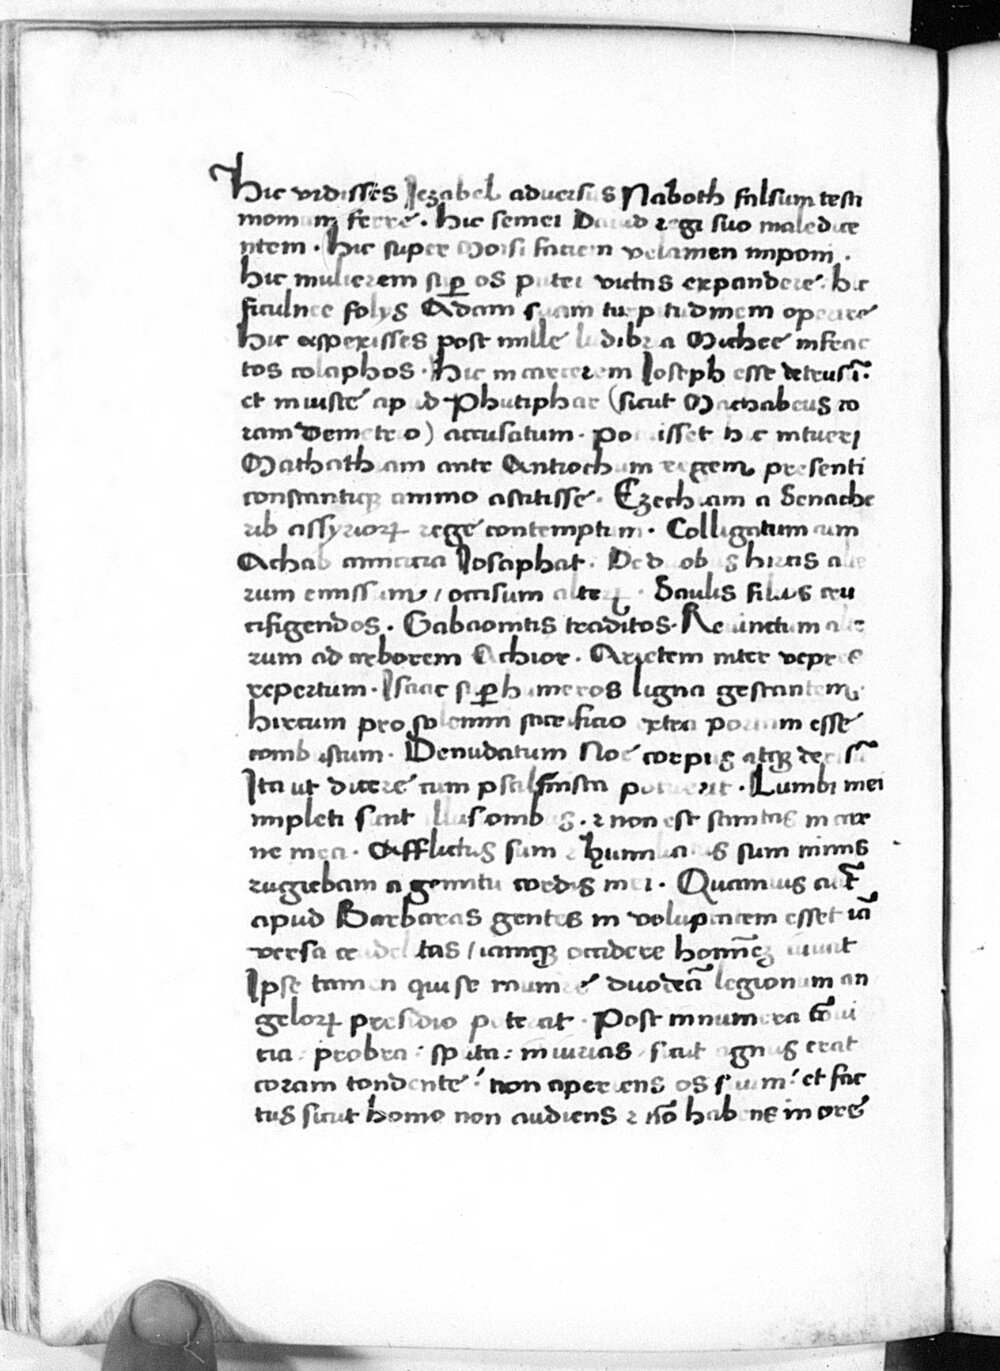 Hic vidisses Jezabel aduersus Naboth falsum testi
monium ferre . hic semei Dauid regi suo maledice
ntem . hic super Moisi faciem velamen imponi .
hic mulierem suꝑ os putei victus expandere . hic
ficulnee folys Adam suam turpitudinem operire
hic aspexisses post mille ludibria Michee infrac
tos colaphos . Hic in carcerem Joseph esse detrusū .
et iniuste apud Phutiphar (sicut Machabeus co
ram Demetrio) accusatum . potuisset hic intueri
Mathathiam ante Antiochum regem presenti
constantiqꝫ animo astitisse . Ezechiam a Senache
rib assyrioꝝ rege contemptum . Colligatum cum
Achab amicicia Josaphat . De duobus hircis alte
rum emissum / occisum alteꝝ . Saulis filius cru
cifigendos . Gabaonitis traditos . Reuinctum alte
rum ad arborem Achior . Arietem inter vepres
repertum . Isaac suꝑ humeros ligna gestantem
hircum pro solemni sacrificio extra portam esse
combustum . Denudatum Noe corpus atqꝫ derisū
Ita ut dicere cum psalmista potuerit . Lumbi mei
impleti sunt illusionibus . ⁊ non est sanitas in car
ne mea . Afflictus sum ⁊ humiliatus sum nimis
rugiebam a gemitu cordis mei . Quamuis aūt
apud Barbaras gentes in voluptatem esset iā
versa crudelitas / iamqꝫ occidere hominē iuuat
Ipse tamen qui se munire duodecī legionum an
geloꝝ presidio poterat . Post innumera cōui
tia : probra : sputa : iniurias sicut agnus erat
coram tondente : non aperiens os suum : et fac
tus sicut homo non audiens ⁊ nō habens in ore